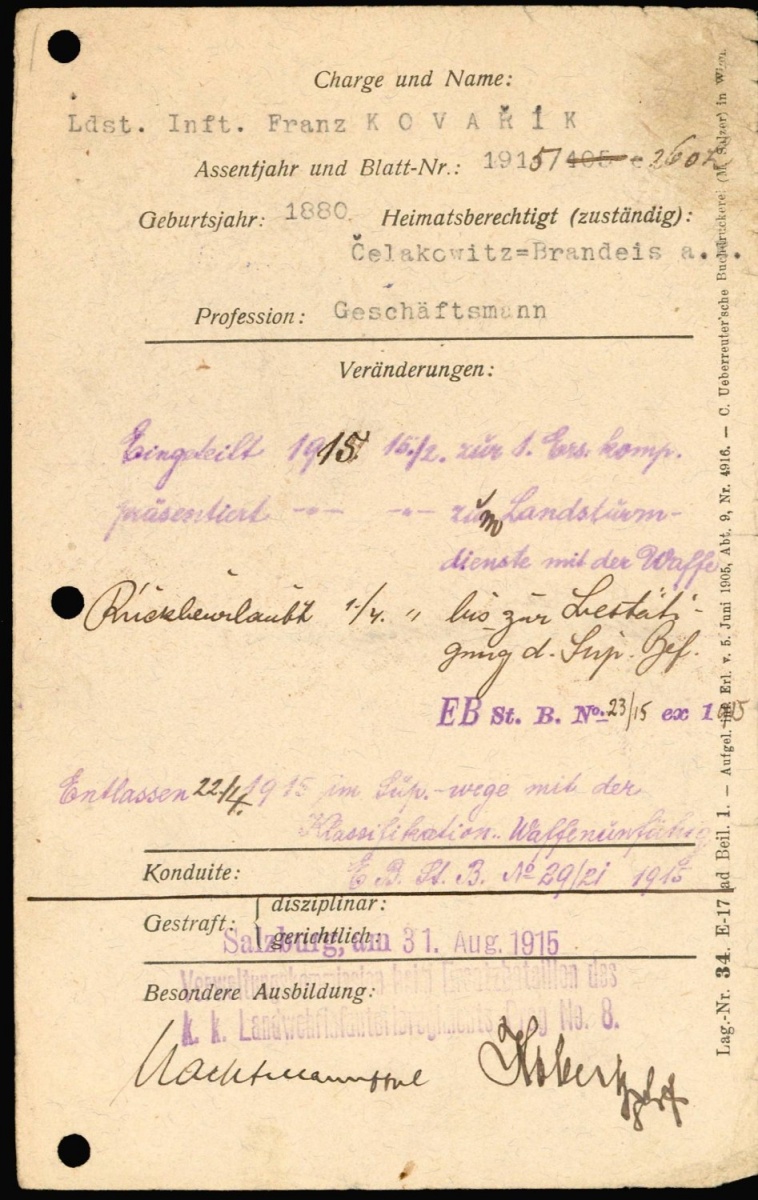 Charge und Name:
Ldst. Inft. Franz KOVAŘÍK
Assentjahr und Blatt-Nr.: 1915/ 405 2602
Geburtsjahr: 1880 Heimatsberechtigt (zuständig):
Čelakowitz=Brandeis a.
Profession: Geschäftsmann
Veränderungen:
Eingeteilt 1915 15./2. zur 1. Ers. komp.
präsentiert -"- -"- zum Landsturm-
dienste mit der Waffe
Rückbeurlaubt 1./4. " bis zur Bestäti-
gung d. Sup. Bef.
EB St. B. No. 23/15 ex 1915
Entlassen 22./4. 1915 im Sup.-wege mit der
Klassifikation: Waffenunfähig
Konduite: E B. St. B. No 29/21 1915
Gestraft: { disziplinar:
gerichtlich:
Salzburg, am 31. Aug. 1915
Verwaltungskommission beim Ersatzbataillon des
Besondere Ausbildung:
k. k. Landwehrinfanterieregiments Prag No. 8.
Lag.-Nr. 34. E-17 ad Beil. 1. — Aufgel. mit Erl. v. 5. Juni 1905, Abt. 9, Nr. 4916. — C. Ueberreuter'sche Buchdruckerei (M. Salzer) in Wien.